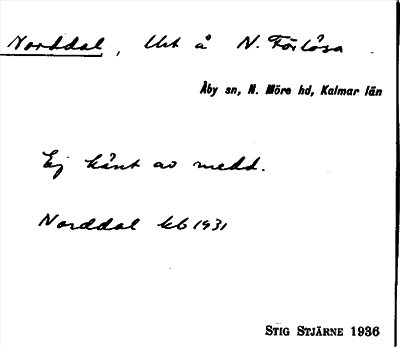 Norddal, Utt å N. Förlösa
Åby sn, N. Möre hd, Kalmar län
Ej känt av medd.
Norddal kb 1931
STIG STJÄRNE 1936